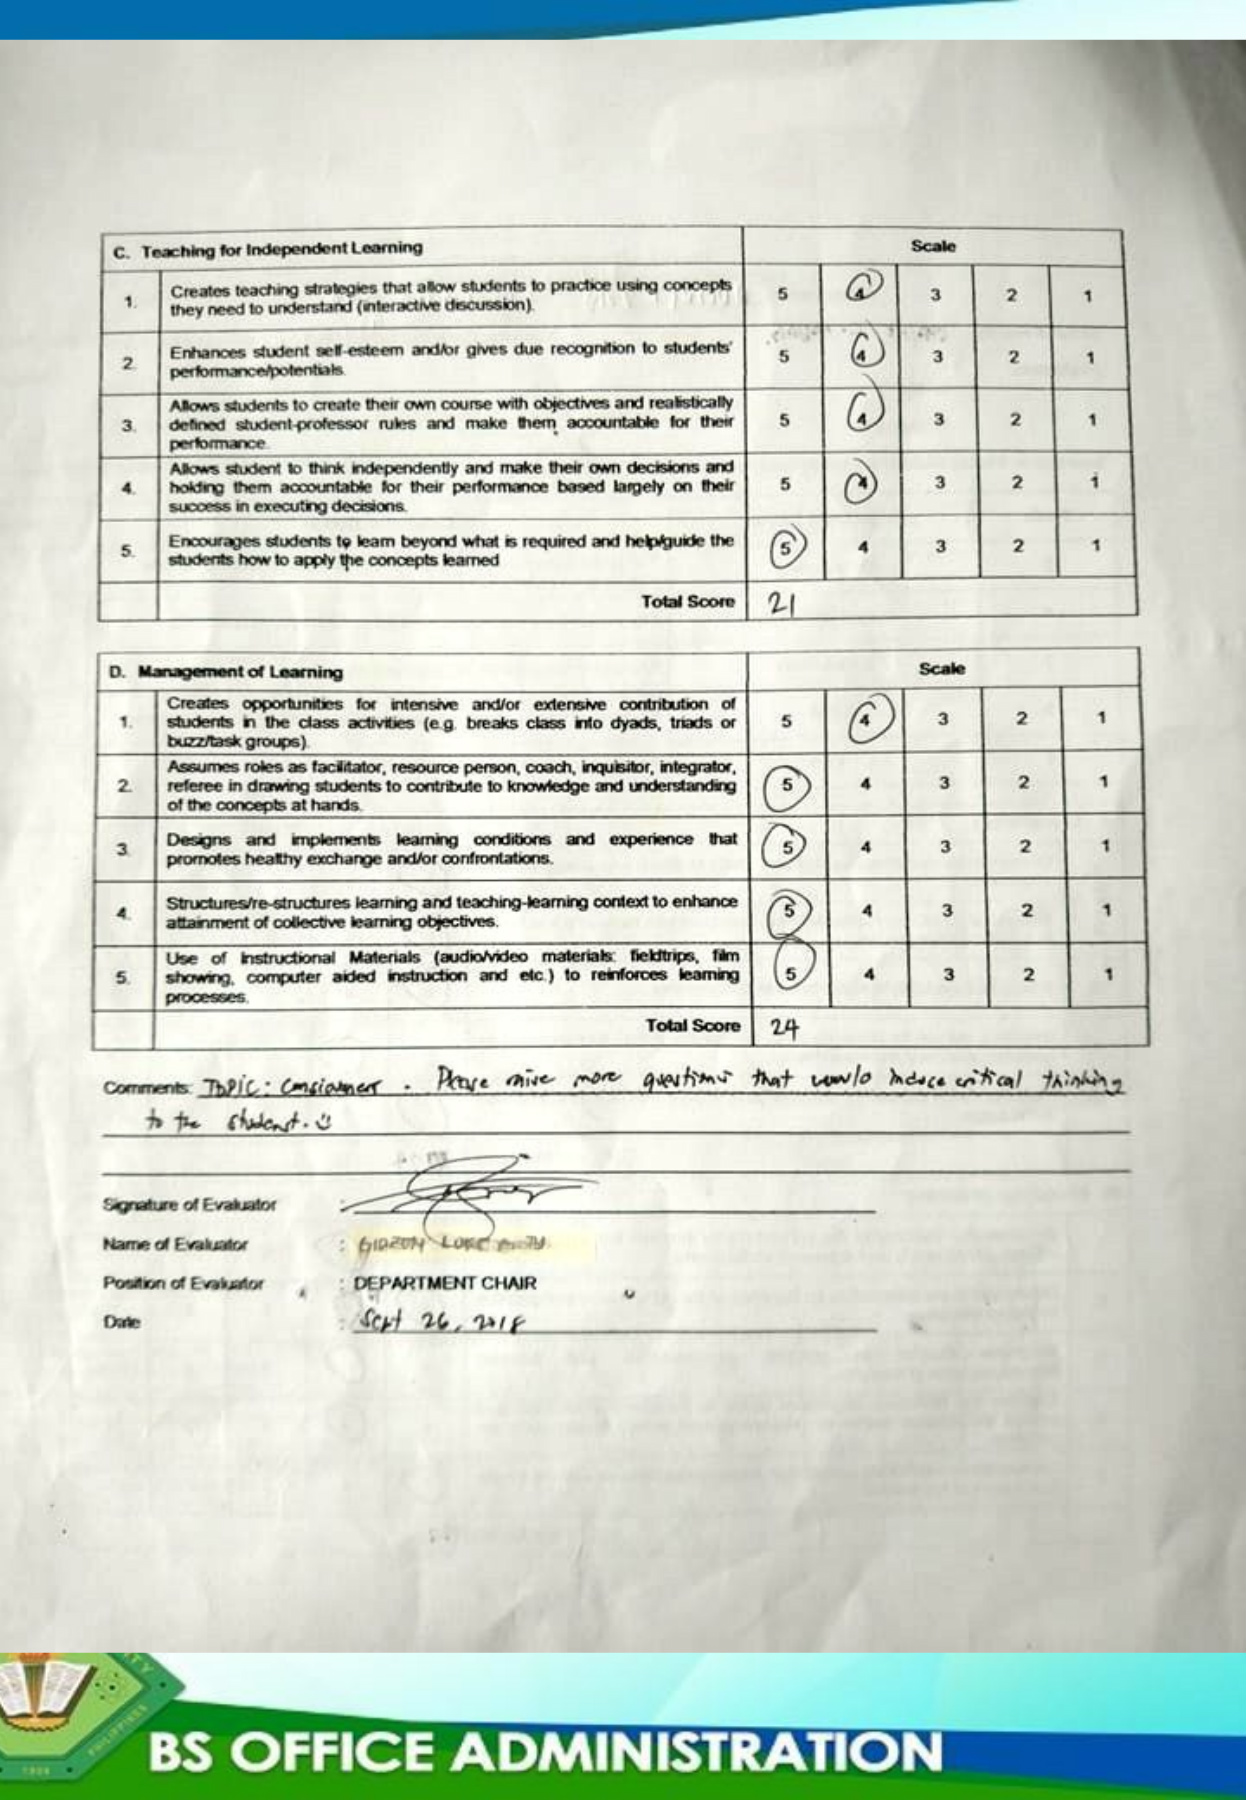 C. Teaching for Independent Learning Scale
1. Creates teaching strategies that allow students to practice using concepts
they need to understand (interactive discussion). 5 4 3 2 1
2. Enhances student self-esteem and/or gives due recognition to students'
performance/potentials. 5 4 3 2 1
3. Allows students to create their own course with objectives and realistically
defined student-professor rules and make them accountable for their
performance. 5 4 3 2 1
4. Allows student to think independently and make their own decisions and
holding them accountable for their performance based largely on their
success in executing decisions. 5 4 3 2 1
5. Encourages students to learn beyond what is required and help/guide the
students how to apply the concepts learned 5 4 3 2 1
Total Score 21
D. Management of Learning Scale
1. Creates opportunities for intensive and/or extensive contribution of
students in the class activities (e.g. breaks class into dyads, triads or
buzz/task groups). 5 4 3 2 1
2. Assumes roles as facilitator, resource person, coach, inquisitor, integrator,
referee in drawing students to contribute to knowledge and understanding
of the concepts at hands. 5 4 3 2 1
3. Designs and implements learning conditions and experience that
promotes healthy exchange and/or confrontations. 5 4 3 2 1
4. Structures/re-structures learning and teaching-learning context to enhance
attainment of collective learning objectives. 5 4 3 2 1
5. Use of Instructional Materials (audio/video materials: fieldtrips, film
showing, computer aided instruction and etc.) to reinforces learning
processes. 5 4 3 2 1
Total Score 24
Comments: TOPIC: . Please more questions that would induce critical thinking
to the student.
Signature of Evaluator :
Name of Evaluator : LUKE
Position of Evaluator : DEPARTMENT CHAIR
Date : Sept 26, 2018
PHILIPPINES
1906
BS OFFICE ADMINISTRATION